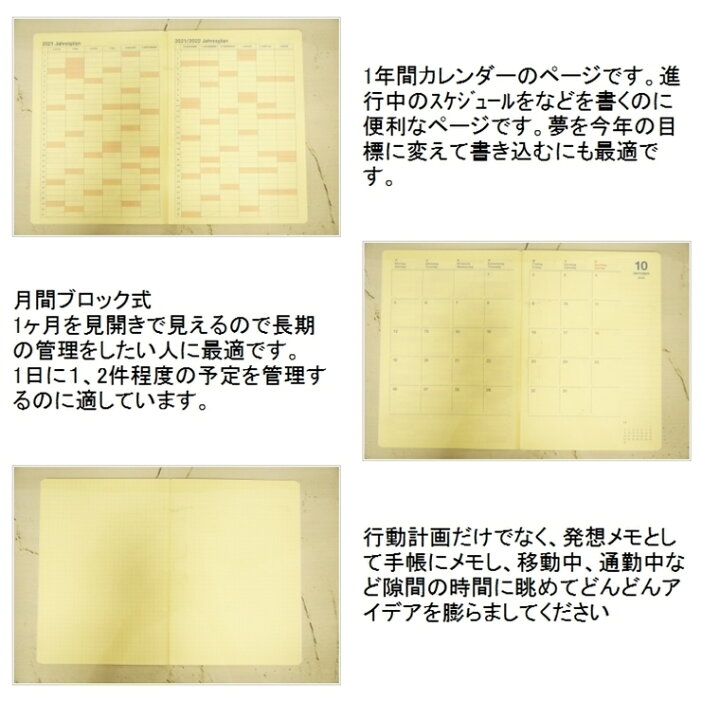 2021 Jahresplan
2021/2022 Jahresplan
1年間カレンダーのページです。進
行中のｽｹｼﾞｭｰﾙをなどを書くのに
便利なページです。夢を今年の目
標に変えて書き込むにも最適で
す。
10
月間ブロック式
1ヶ月を見開きで見えるので長期
の管理をしたい人に最適です。
1日に1、2件程度の予定を管理す
るのに適しています。
行動計画だけでなく、発想メモとし
て手帳にメモし、移動中、通勤中な
ど隙間の時間に眺めてどんどんア
イデアを膨らましてください